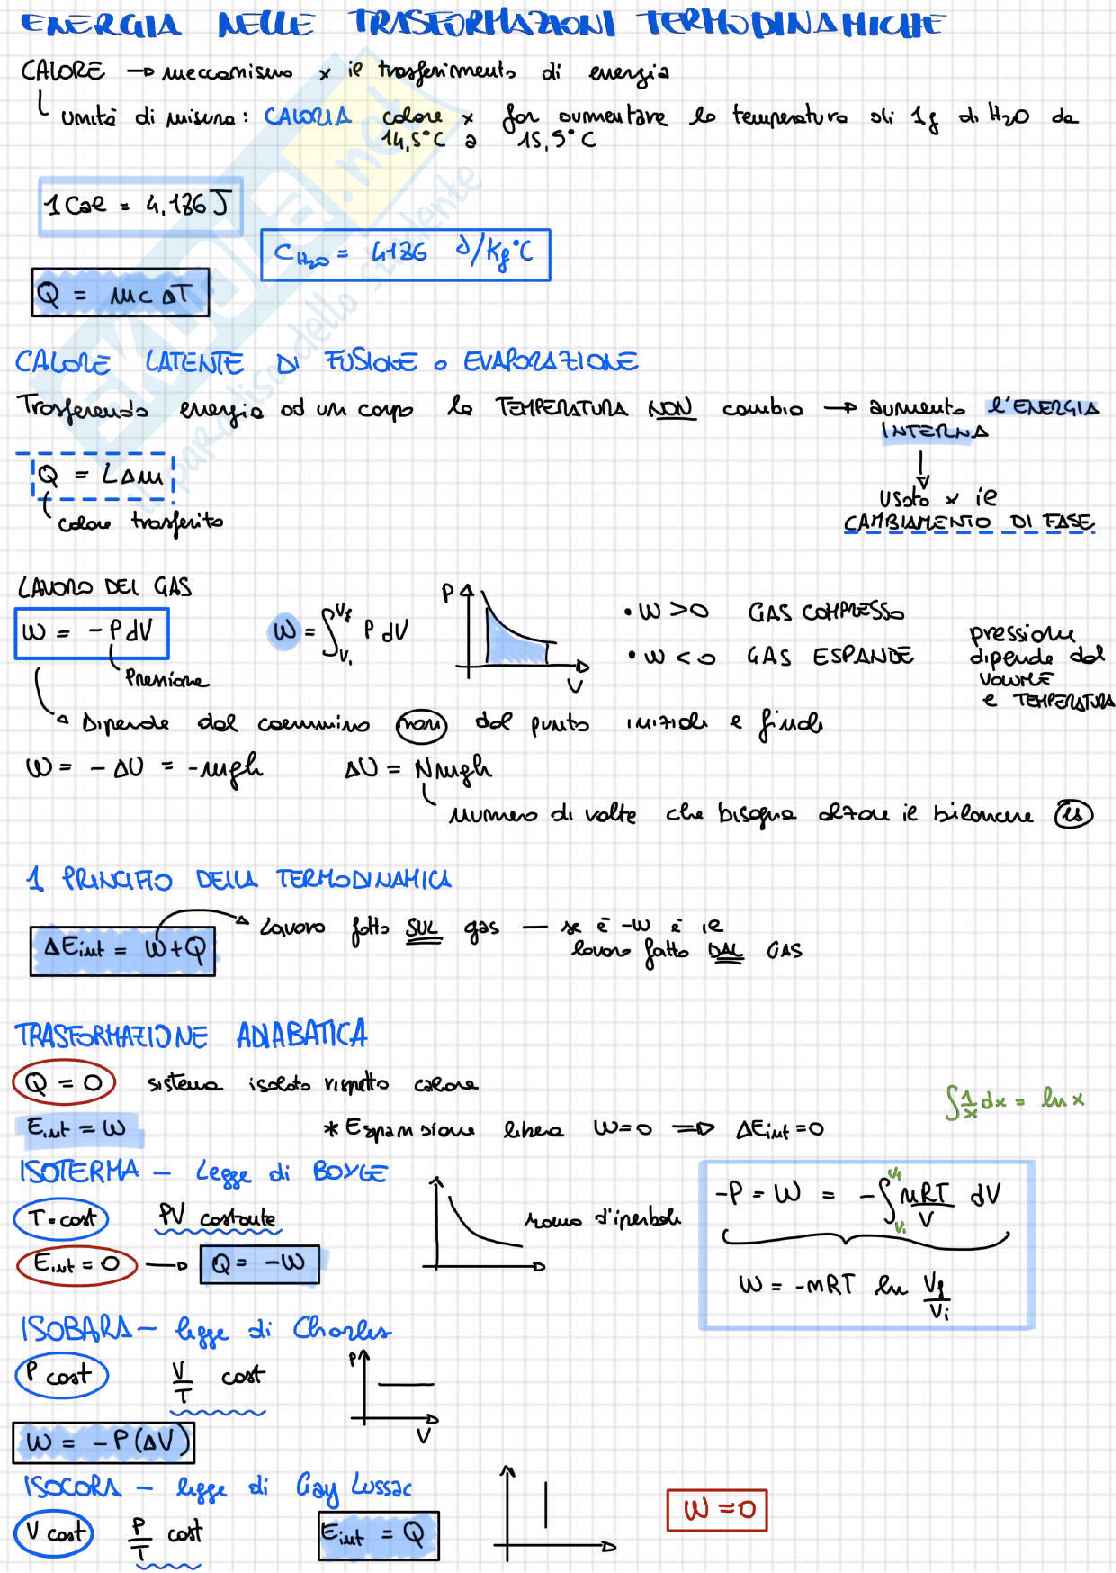 ENERGIA NELLE TRASFORMAZIONI TERMODINAMICHE
CALORE → meccanismo x il trasferimento di energia
unità di misura: CALORIA calore x far aumentare la temperatura di 1g di H2O da
14,5°C a 15,5°C
1 Cal = 4,186 J
C H2O = 4186 J/Kg°C
Q = mc ΔT
CALORE LATENTE DI FUSIONE o EVAPORAZIONE
Trasferendo energia ad un corpo la TEMPERATURA NON cambia → aumenta l'ENERGIA
INTERNA
Q = LΔm
usato x il
calore trasferito
CAMBIAMENTO DI FASE
LAVORO DEL GAS
W = -PdV
Pressione
W = ∫ Vf Vi P dV
P
V
• W > 0 GAS COMPRESSO
• W < 0 GAS ESPANDE
pressione
dipende dal
VOLUME
e TEMPERATURA
Dipende dal cammino non dal punto iniziale e finale
W = - ΔU = -mgh ΔU = Nmgh
numero di volte che bisogna alzare il bilanciere
1 PRINCIPIO DELLA TERMODINAMICA
ΔEint = W+Q
Lavoro fatto SUL gas — se è -W è il
lavoro fatto DAL GAS
TRASFORMAZIONE ADIABATICA
Q = 0 sistema isolato rispetto calore
∫ 1/x dx = ln x
Eint = W * Espansione libera W=0 ⇒ ΔEint=0
ISOTERMA — Legge di BOYLE
T=cost PV costante
ramo d'iperbole
Eint = 0 → Q = -W
-P = W = -∫ Vf Vi nRT/V dV
W = -nRT ln Vf/Vi
ISOBARA — legge di Charles
P cost V/T cost
P
V
W = -P(ΔV)
ISOCORA — legge di Gay Lussac
V cost P/T cost
Eint = Q
W=0